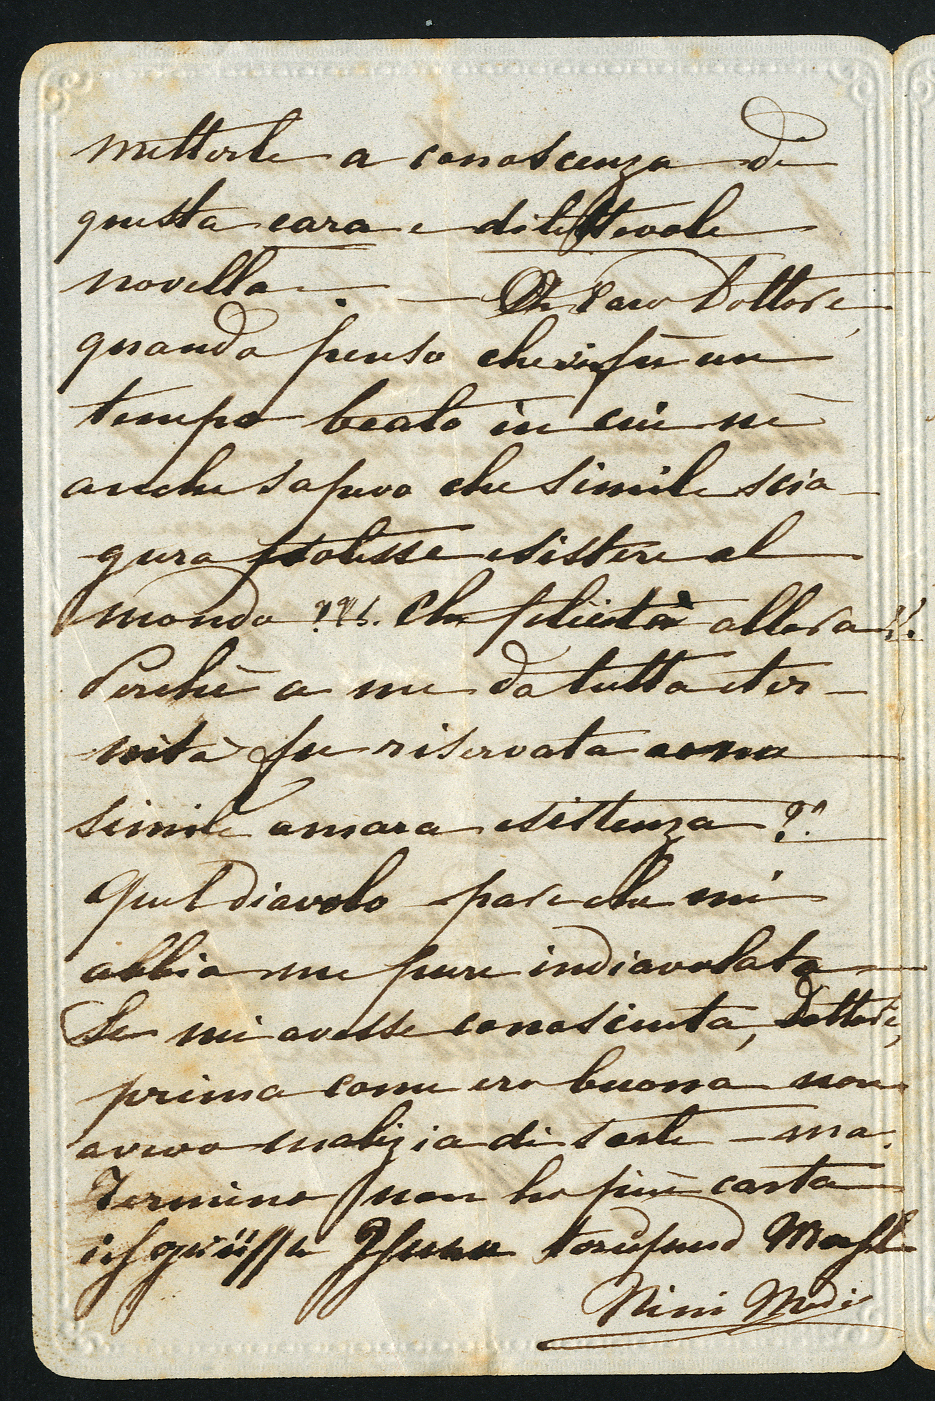 metterle a conoscenza di
questa cara e dilettevole
novella. — Oh Caro Dottore,
quando penso che vi fù un
tempo beato in cui nè
anche sapevo che simile scia-
gura potesse esistere al
mondo ??!. Che felicità allora!!.
Perchè a me da tutta eter-
nità fu riservata una
simile amara esistenza ?!
Quel diavolo pare che mi
abbia me pure indiavolata
Se mi avesse conosciuta, Dottore,
prima come ero buona non
avevo malizia di sorte — ma.
Termino non ho più carta
ich grüsse Ihnen tausend Mahl
Nini Medi